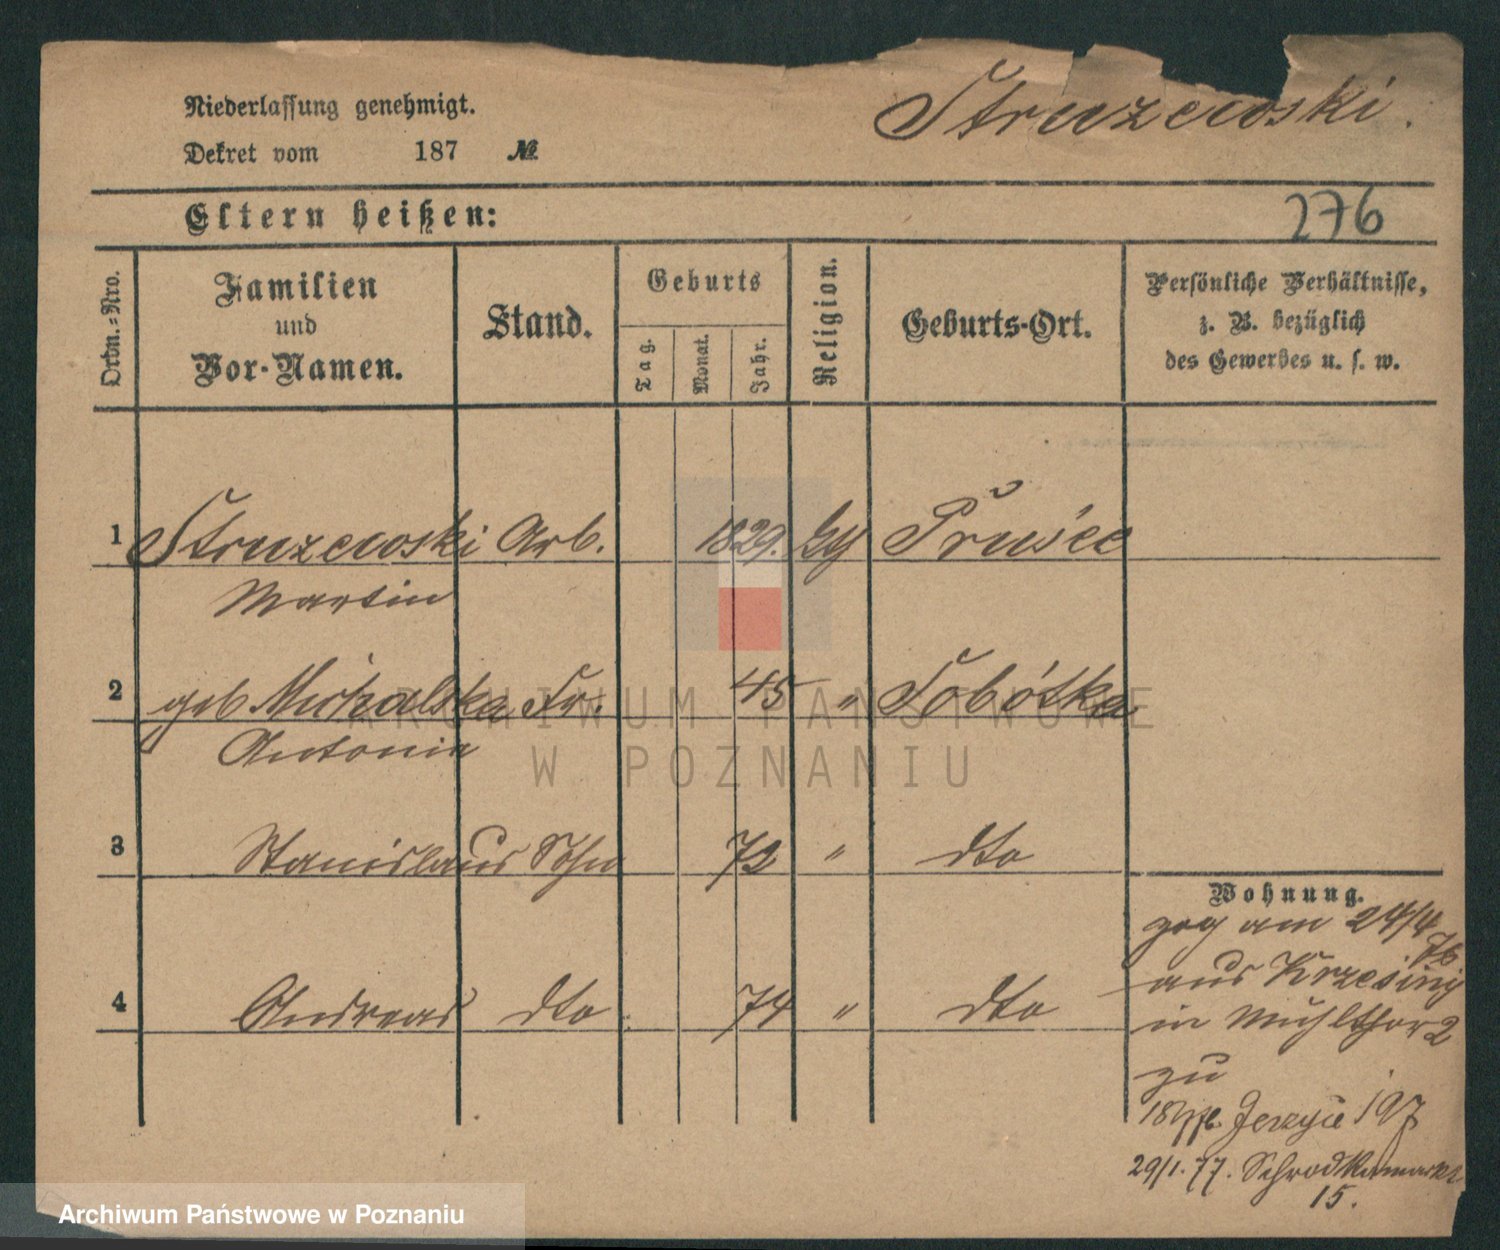 Niederlassung genehmigt.
Struzewski.
Dekret vom 187 №
Eltern heißen:
276
Ordn.-Nro.
Familien
und
Vor-Namen.
Stand.
Geburts
Tag.
Monat.
Jahr.
Religion.
Geburts-Ort.
Persönliche Verhältnisse,
z. B. bezüglich
des Gewerbes u. s. w.
1 Struzewski Arb. 1829.
Martin
2 geb Michalska Fr. 45 "
Antonie
3 Stanislaus Sohn 72 " dto
4 Andreas dto 74 " dto
Wohnung.
zog am 24/4 76
aus Krzesiny
in Mühlthor 2
zu
Jerzyce 197
29/1. 77. Schrodkamarkt
15.
ARCHIWUM PAŃSTWOWE
W POZNANIU
Archiwum Państwowe w Poznaniu